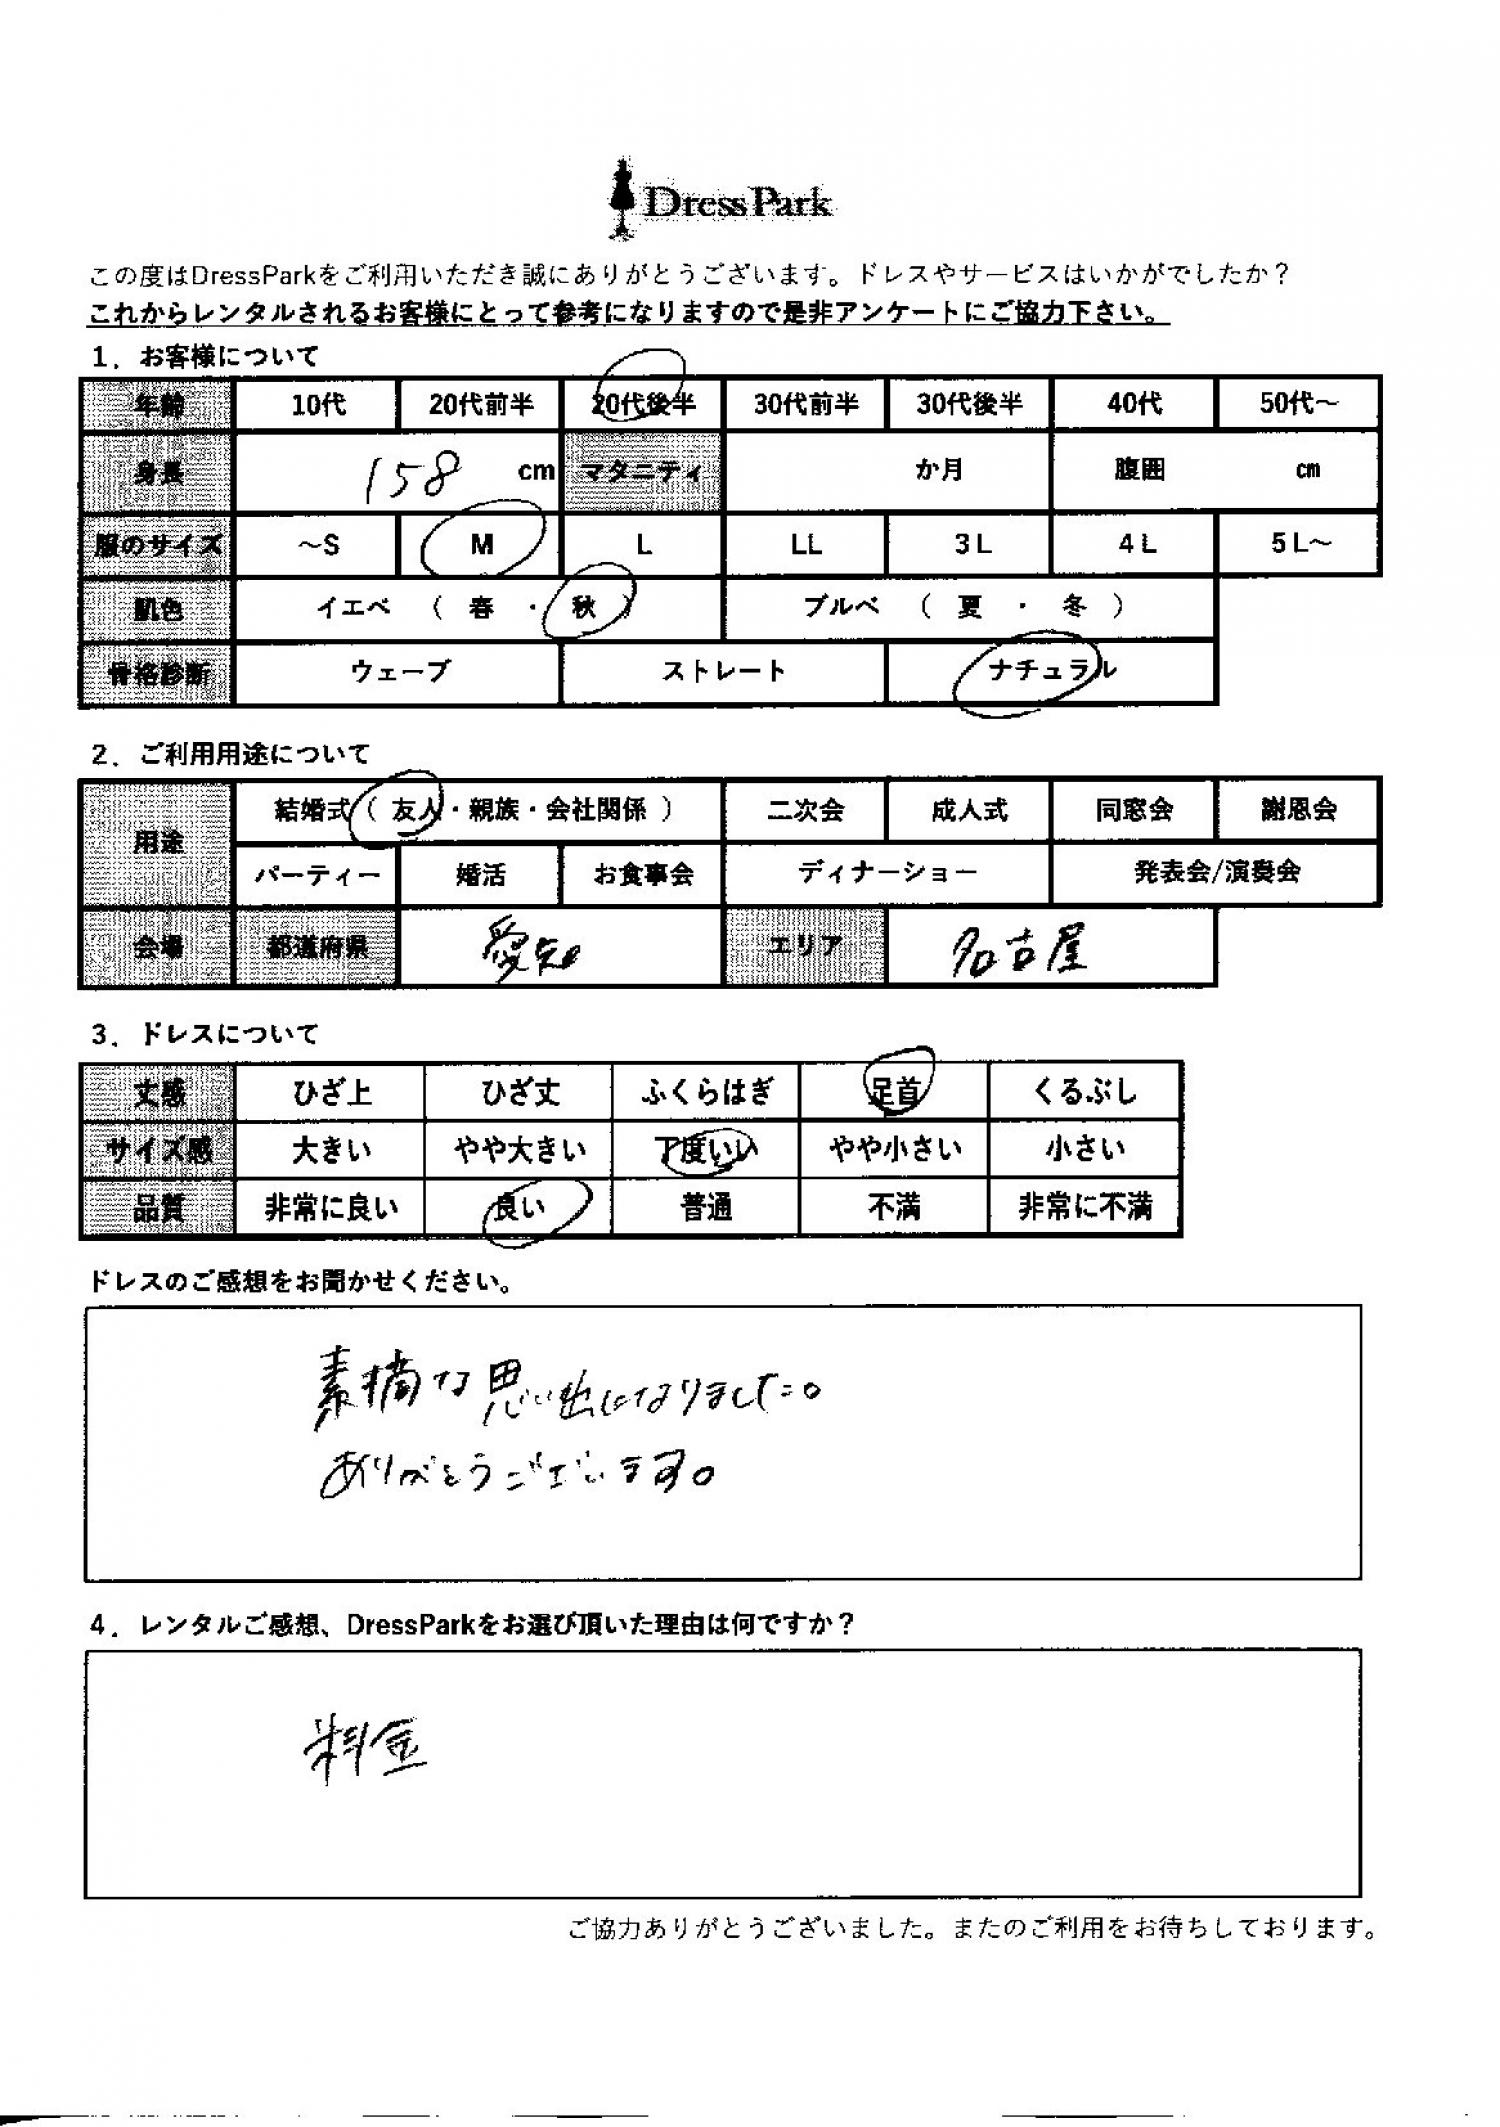 DressPark
この度はDressParkをご利用いただき誠にありがとうございます。ドレスやサービスはいかがでしたか？
これからレンタルされるお客様にとって参考になりますので是非アンケートにご協力下さい。
1．お客様について
年齢 10代 20代前半 20代後半 30代前半 30代後半 40代 50代～
身長 158 cm マタニティ か月 腹囲 cm
服のサイズ ～S M L LL 3L 4L 5L～
肌色 イエベ （ 春 ・ 秋 ） ブルベ （ 夏 ・ 冬 ）
骨格診断 ウェーブ ストレート ナチュラル
2．ご利用用途について
用途 結婚式（ 友人・親族・会社関係 ） 二次会 成人式 同窓会 謝恩会
パーティー 婚活 お食事会 ディナーショー 発表会/演奏会
会場 都道府県 愛知 エリア 名古屋
3．ドレスについて
丈感 ひざ上 ひざ丈 ふくらはぎ 足首 くるぶし
サイズ感 大きい やや大きい 丁度いい やや小さい 小さい
品質 非常に良い 良い 普通 不満 非常に不満
ドレスのご感想をお聞かせください。
素摘な思い出になりました。
ありがとうございます。
4．レンタルご感想、DressParkをお選び頂いた理由は何ですか？
料金
ご協力ありがとうございました。またのご利用をお待ちしております。